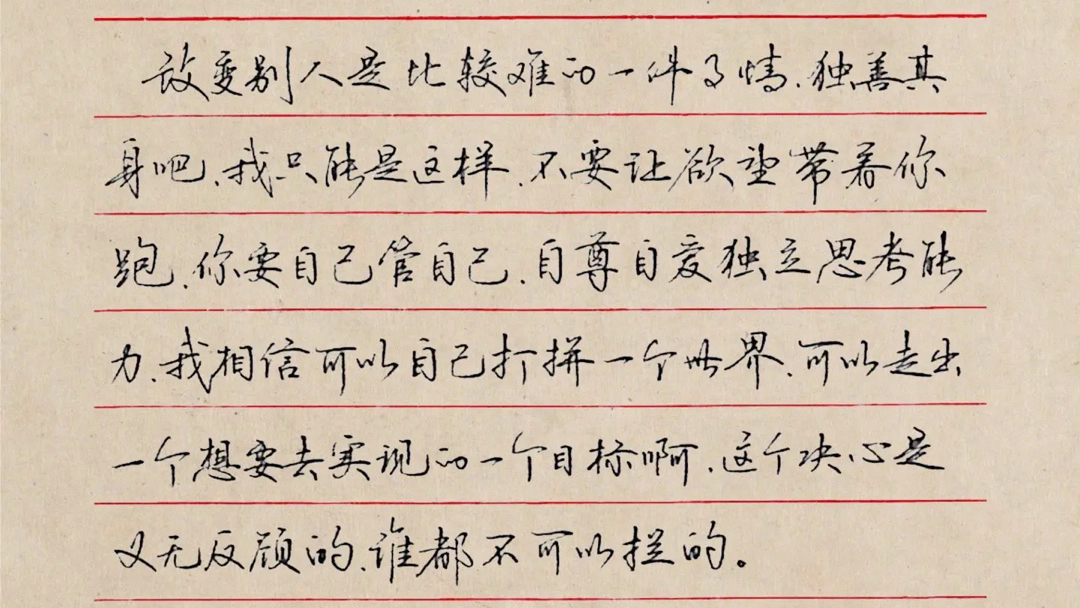 改变别人是比较难的一件事情、独善其
身吧、我只能是这样、不要让欲望带着你
跑、你要自己管自己、自尊自爱独立思考能
力、我相信可以自己打拼一个世界、可以走出
一个想要去实现的一个目标啊、这个决心是
义无反顾的、谁都不可以拦的。